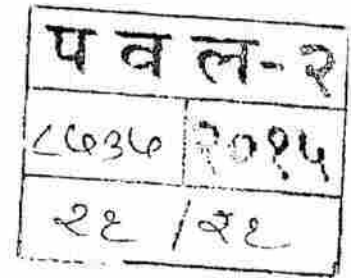 प व ल-२
८७३७ २०१५
२१ / २१